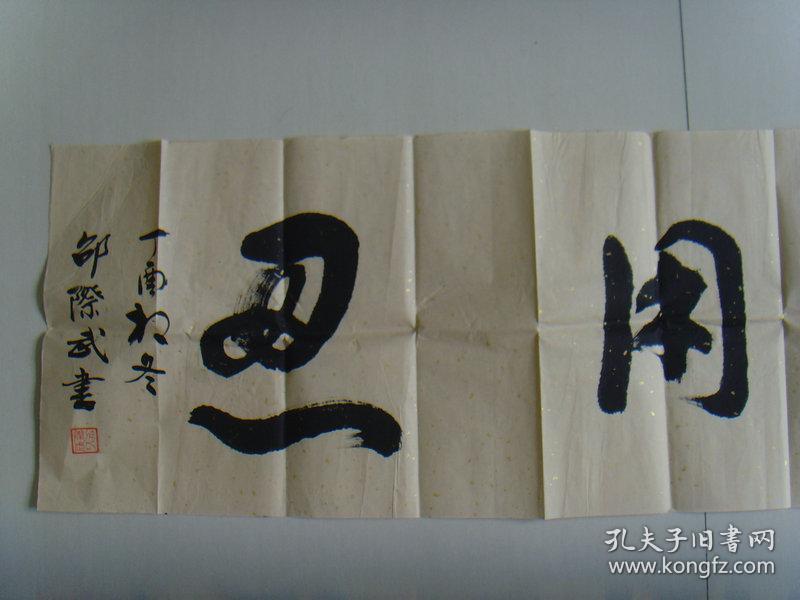 用忍
丁酉初冬
邵際武書
孔夫子旧書网
www.kongfz.com